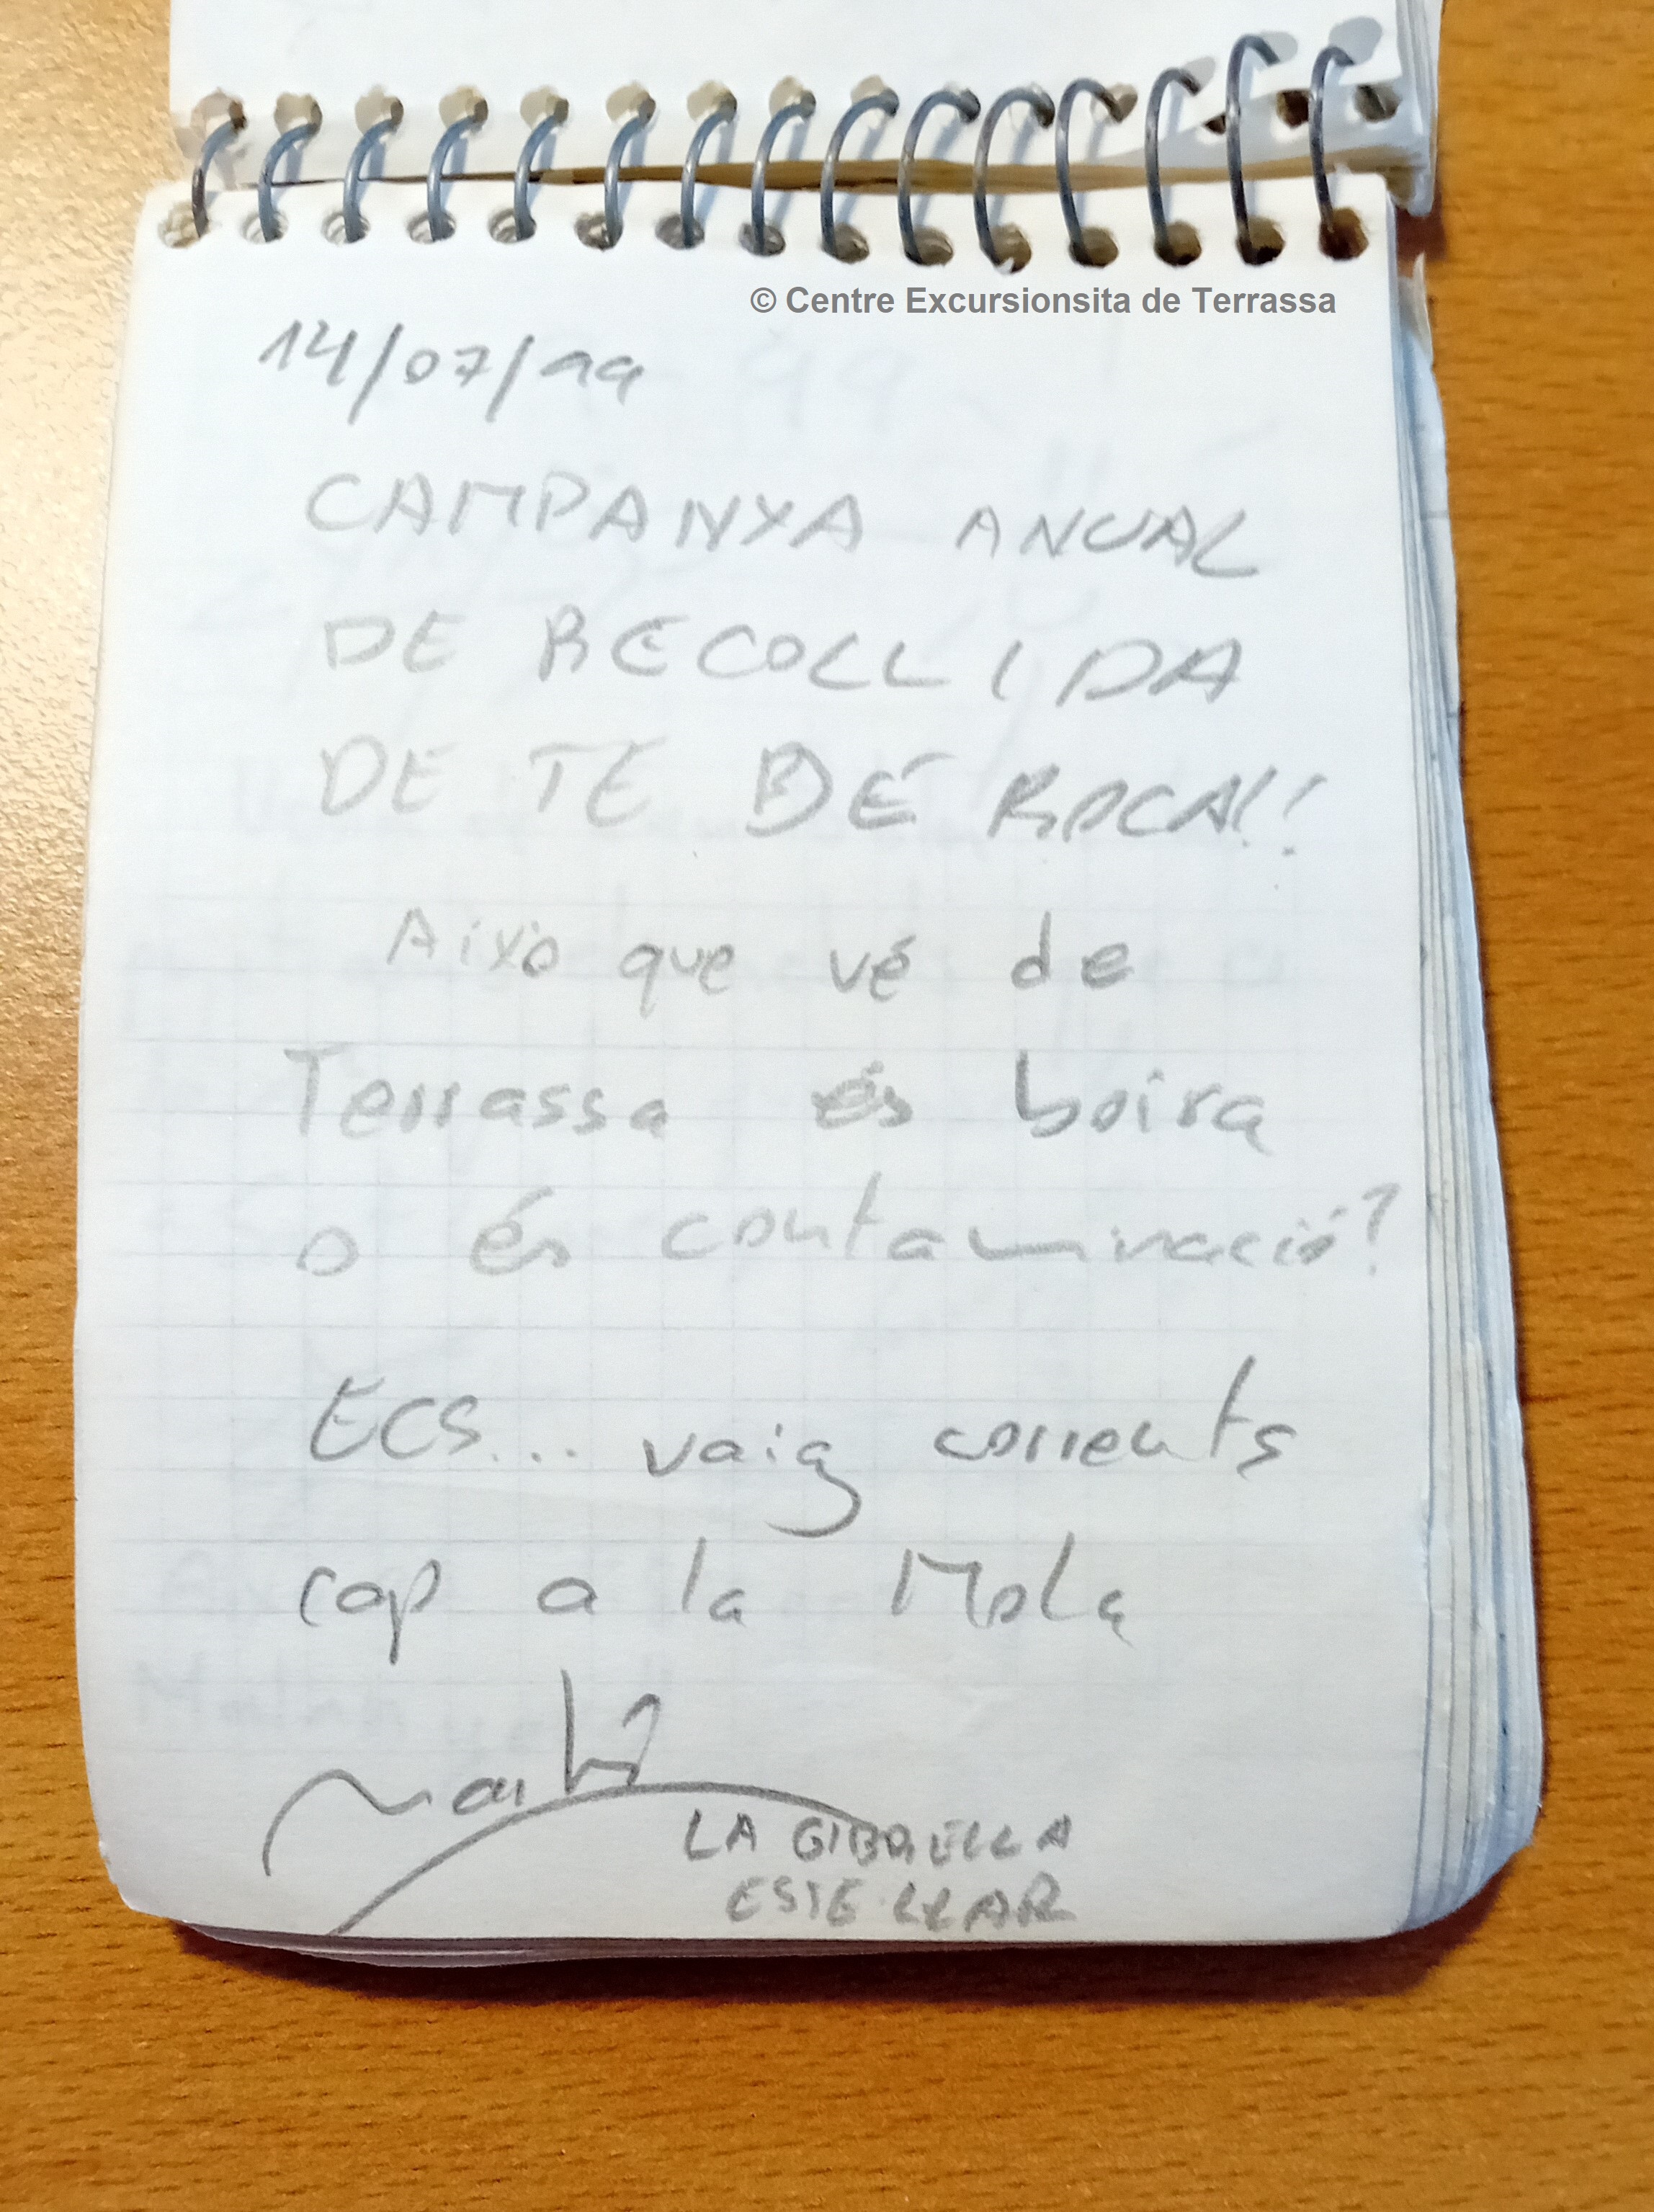 © Centre Excursionsita de Terrassa
14/07/99
CAMPANYA ANUAL
DE RECOLLIDA
DE TE DE ROCA!!
Això que vé de
Terrassa és boira
o és contaminació?
ECS... vaig corrents
cap a la Mola
LA GIBRELLA
ESTELLAR